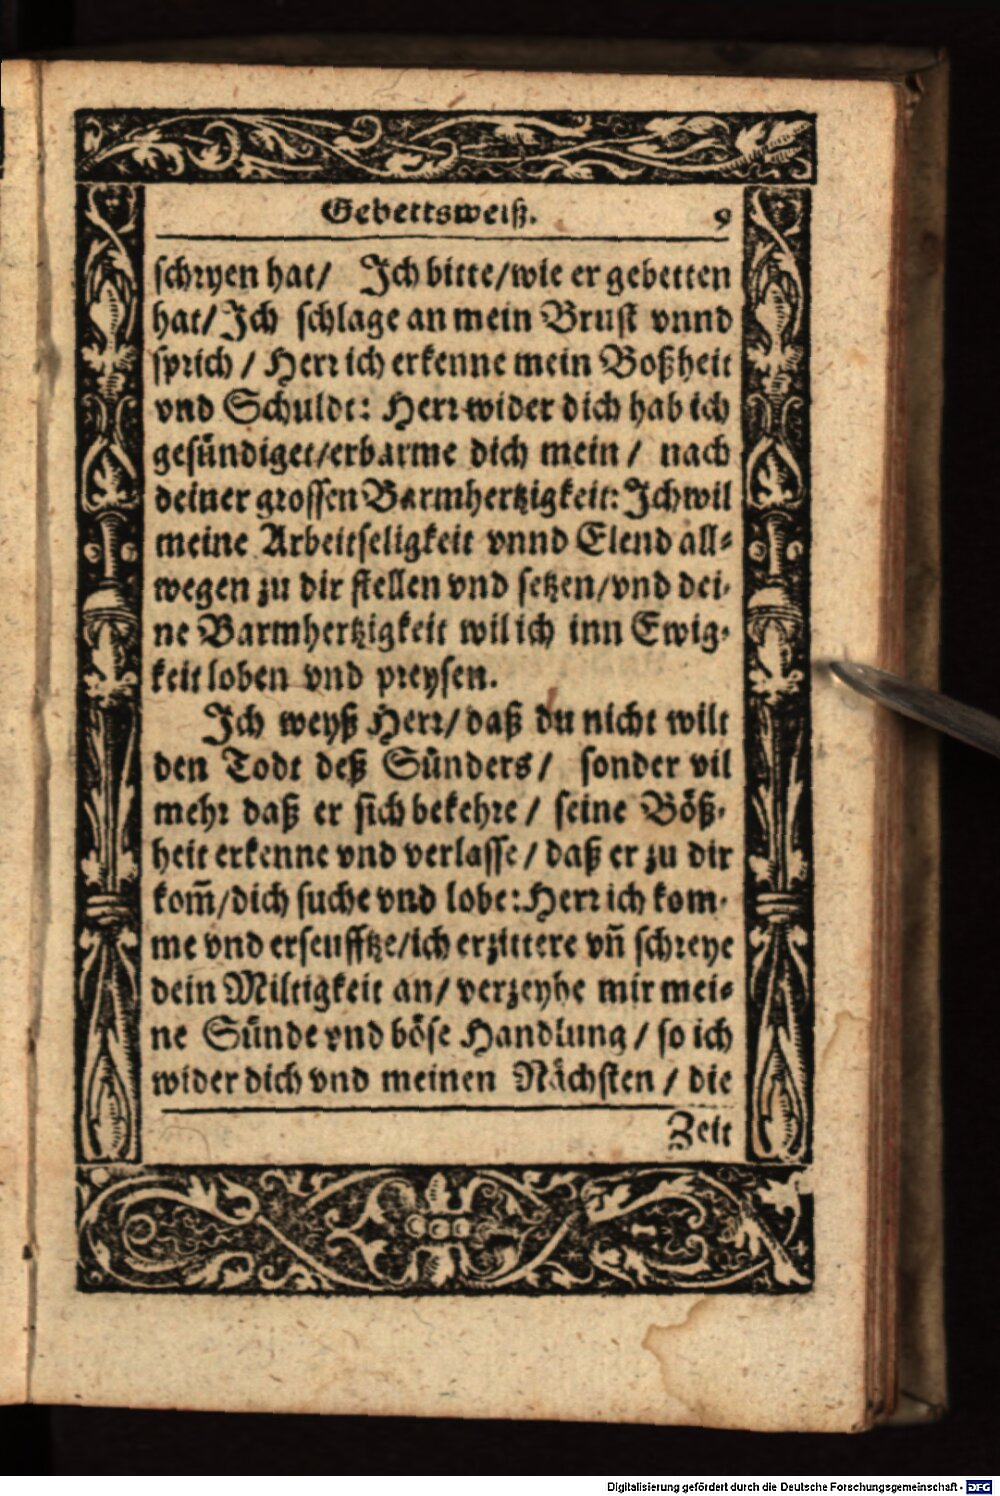 Gebettsweiß. 9
schryen hat/ Ich bitte/wie er gebetten
hat/Ich schlage an mein Brust vnnd
sprich / Herr ich erkenne mein Boßheit
vnd Schuldt: Herr wider dich hab ich
gesündiget/erbarme dich mein / nach
deiner grossen Barmhertzigkeit: Ich wil
meine Arbeitseligkeit vnnd Elend all⸗
wegen zu dir stellen vnd setzen/vnd dei⸗
ne Barmhertzigkeit wil ich inn Ewig⸗
keit loben vnd preysen.
Ich weyß Herr/ daß du nicht wilt
den Todt deß Sünders / sonder vil
mehr daß er sich bekehre / seine Böß⸗
heit erkenne vnd verlasse / daß er zu dir
kom̃/dich suche vnd lobe: Herr ich kom⸗
me vnd erseufftze/ich erzittere vñ schreye
dein Miltigkeit an/ verzeyhe mir mei⸗
ne Sünde vnd böse Handlung / so ich
wider dich vnd meinen Nächsten / die
Zeit
Digitalisierung gefördert durch die Deutsche Forschungsgemeinschaft - DFG